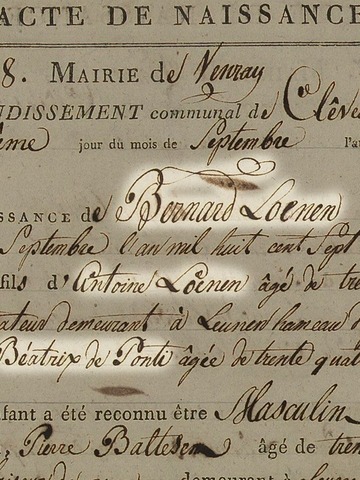 ACTE DE NAISSANCE
8. MAIRIE de Venray
NDISSEMENT communal de Clêves
ème jour du mois de Septembre l'a
SSANCE de Bernard Loenen
Septembre l'an mil huit cent Sept
fils d'Antoine Loenen âgé de tre
ateur demeurant à Leunen hameau
Béatrix de Ponti âgée de trente quat
fant a été reconnu être Masculin
, Pierre Baltesen âgé de tren
demeurant à